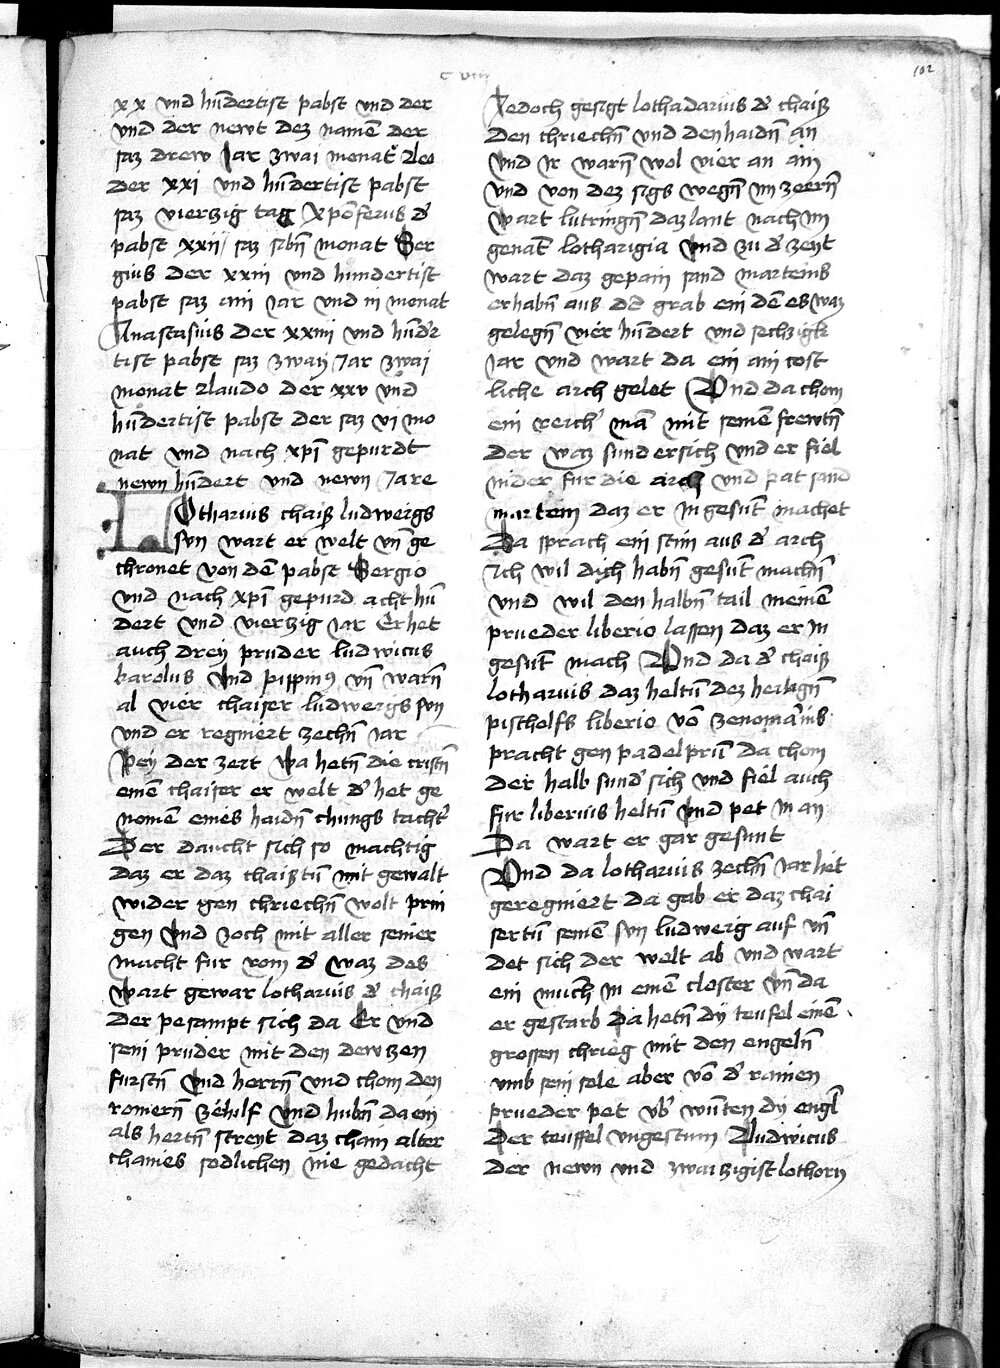 102
xx vnd hūdertist pabst vnd der
vnd der newt dez namē der
saz drew Jar zwai monat Leo
der xxi vnd hūdertist pabst
saz vierczig tag Xpōferus d'
pabst xxii saz sibn̄ monat Ser
gius der xxiii vnd hundertist
pabst saz aini Jar vnd iii monat
Anastasius der xxiiii vnd hūd'r
tist pabst saz zwaij Jar zwai
monat Claudo der xxv vnd
hūdertist pabst der saz vi mo
nat vnd nach xpī gepurdt
newn hūdert vnd newn Jare
Lotharius chaiß ludweigs
sun wart er welt vn̄ ge
chronet von dē pabst Sergio
vnd nach xpī gepurd acht hū
dert vnd vierczig Jar Er het
auch dreij pruder ludwicus
karolus vnd pippin9 vn̄ warn̄
al vier chaiser ludweigs sun
vnd er regniert zechn̄ Jar
Peij der zert Da hetn̄ die cristn̄
einē chaiser er welt d' het ge
nomē eines haidn̄ chungs tacht'
Der daucht sich so machtig
daz er daz chaißtū mit gewalt
wider gen chriechn̄ wolt prin
gen vnd zoch mit aller seiner
macht fur rom d' waz des
wart gewar lotharius d' chaiß
der pesampt sich da Er vnd
sein pruder mit den dewtzen
furstn̄ vnd herrn̄ vnd chom den
romern̄ zehilf vnd hubn̄ da ein
als hertn̄ streyt daz chain alter
chaines sodlichen nie gedacht
Jedoch gesigt lothadarius d' chaiß
den chriechn̄ vnd den haidn̄ an
vnd Jr warn̄ wol vier an ain
vnd von dez sigs wegn̄ im zeern̄
wart lutringn̄ daz lant nach im
genāt lotharigia vnd zu d' zeyt
wart daz gepain sand marteins
erhabn̄ aus dē grab ein dē es waz
gelegn̄ vier hūdert vnd sechzigk
Jar vnd wart da ein ain cost
liche arch gelet Vnd da chom
ein reich' mā mit seinē frewtn̄
der waz sundersich vnd er fiel
nider fur die arch vnd pat sand
martein daz er in gesūt machet
Da sprach ein stim aus d' arch
Ich wil dich habn̄ gesūt machn̄
vnd wil den halbn̄ tail meinē
prueder liberio lassen daz er in
gesūt mach Vnd da d' chaiß
lotharius daz heltū dez heilign̄
pischolfs liberio vō zenomānis
pracht gen padelprūn da chom
der halb sund'sich vnd fiel auch
fur liberius heltū vnd pet in an
Da wart er gar gesunt
Vnd da lotharius zechn̄ Jar het
geregniert da gab er daz chai
sertū seinē sun ludweig auf vn̄
det sich der welt ab vnd wart
ein munch in einē closter vn̄ da
er gestarb Da hetn̄ dy teufel einē
grossen chrieg mit den engeln̄
vmb sein sele aber vō d' rainen
prueder pet vb' wūten dy engl
Der teuffel vngestum Ludwicus
der newn vnd zwaizigist lothorn